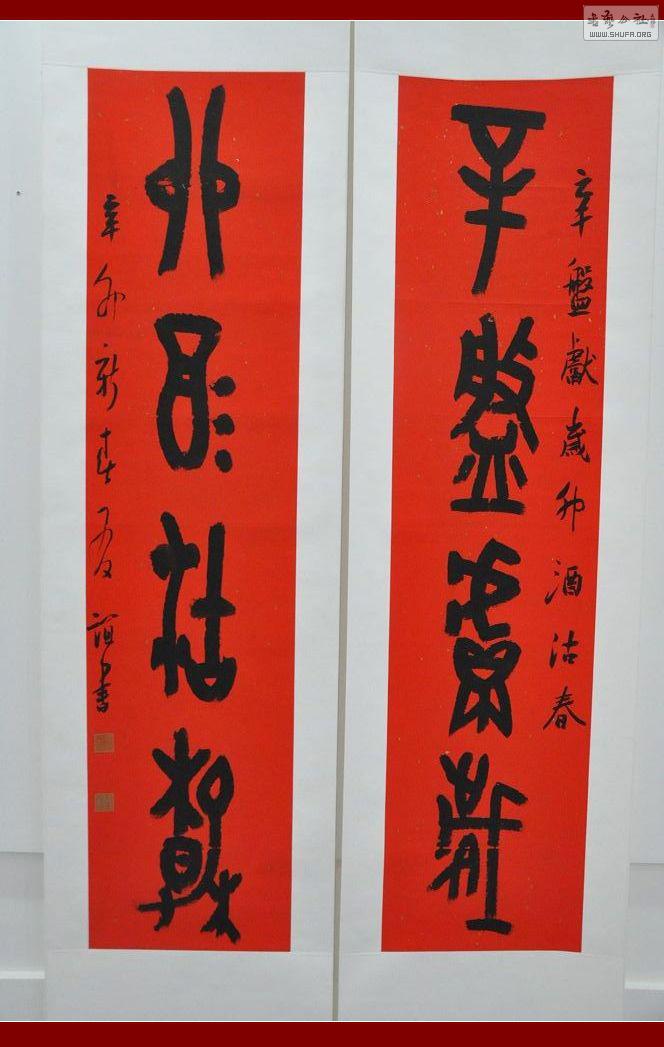 辛盤獻歲
辛盤獻歲卯酒沽春
卯酒沽春
辛卯新春
書
書法公社
WWW.SHUFA.ORG